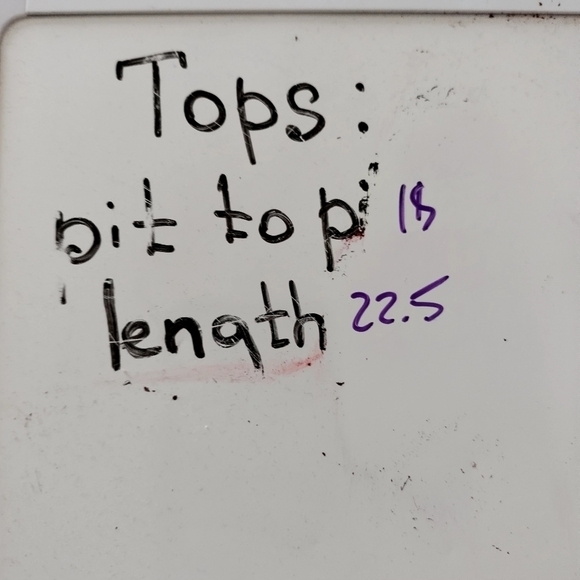 Tops:
pit to pi 18
length 22.5